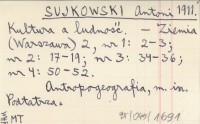 SUJKOWSKI Antoni 1911.
Kultura a ludność. – Ziemia
(Warszawa) 2, nr 1: 2-3;
nr 2: 17-19; nr 3: 34-36;
nr 4: 50-52.
Antropogeografia, m. in.
Podtatrza.
MT